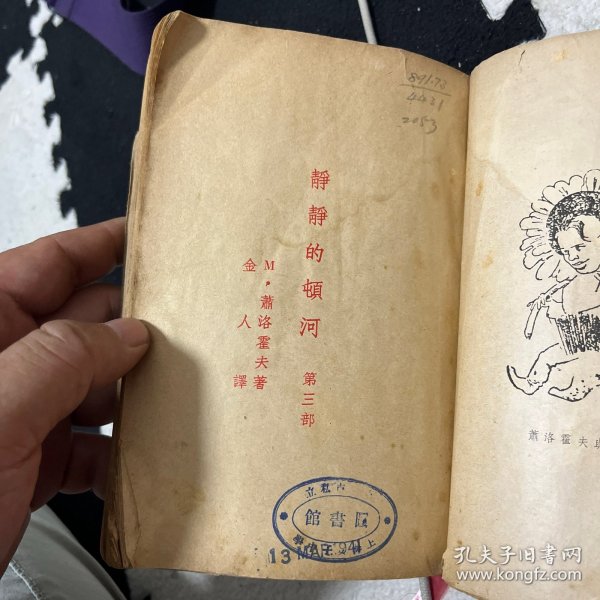 891.73
4431
2053
靜靜的頓河 第三部
M·蕭洛霍夫著
金人譯
私立
圖書館
13 MAY 1941
蕭洛霍夫與
孔夫子旧书网
www.kongfz.com